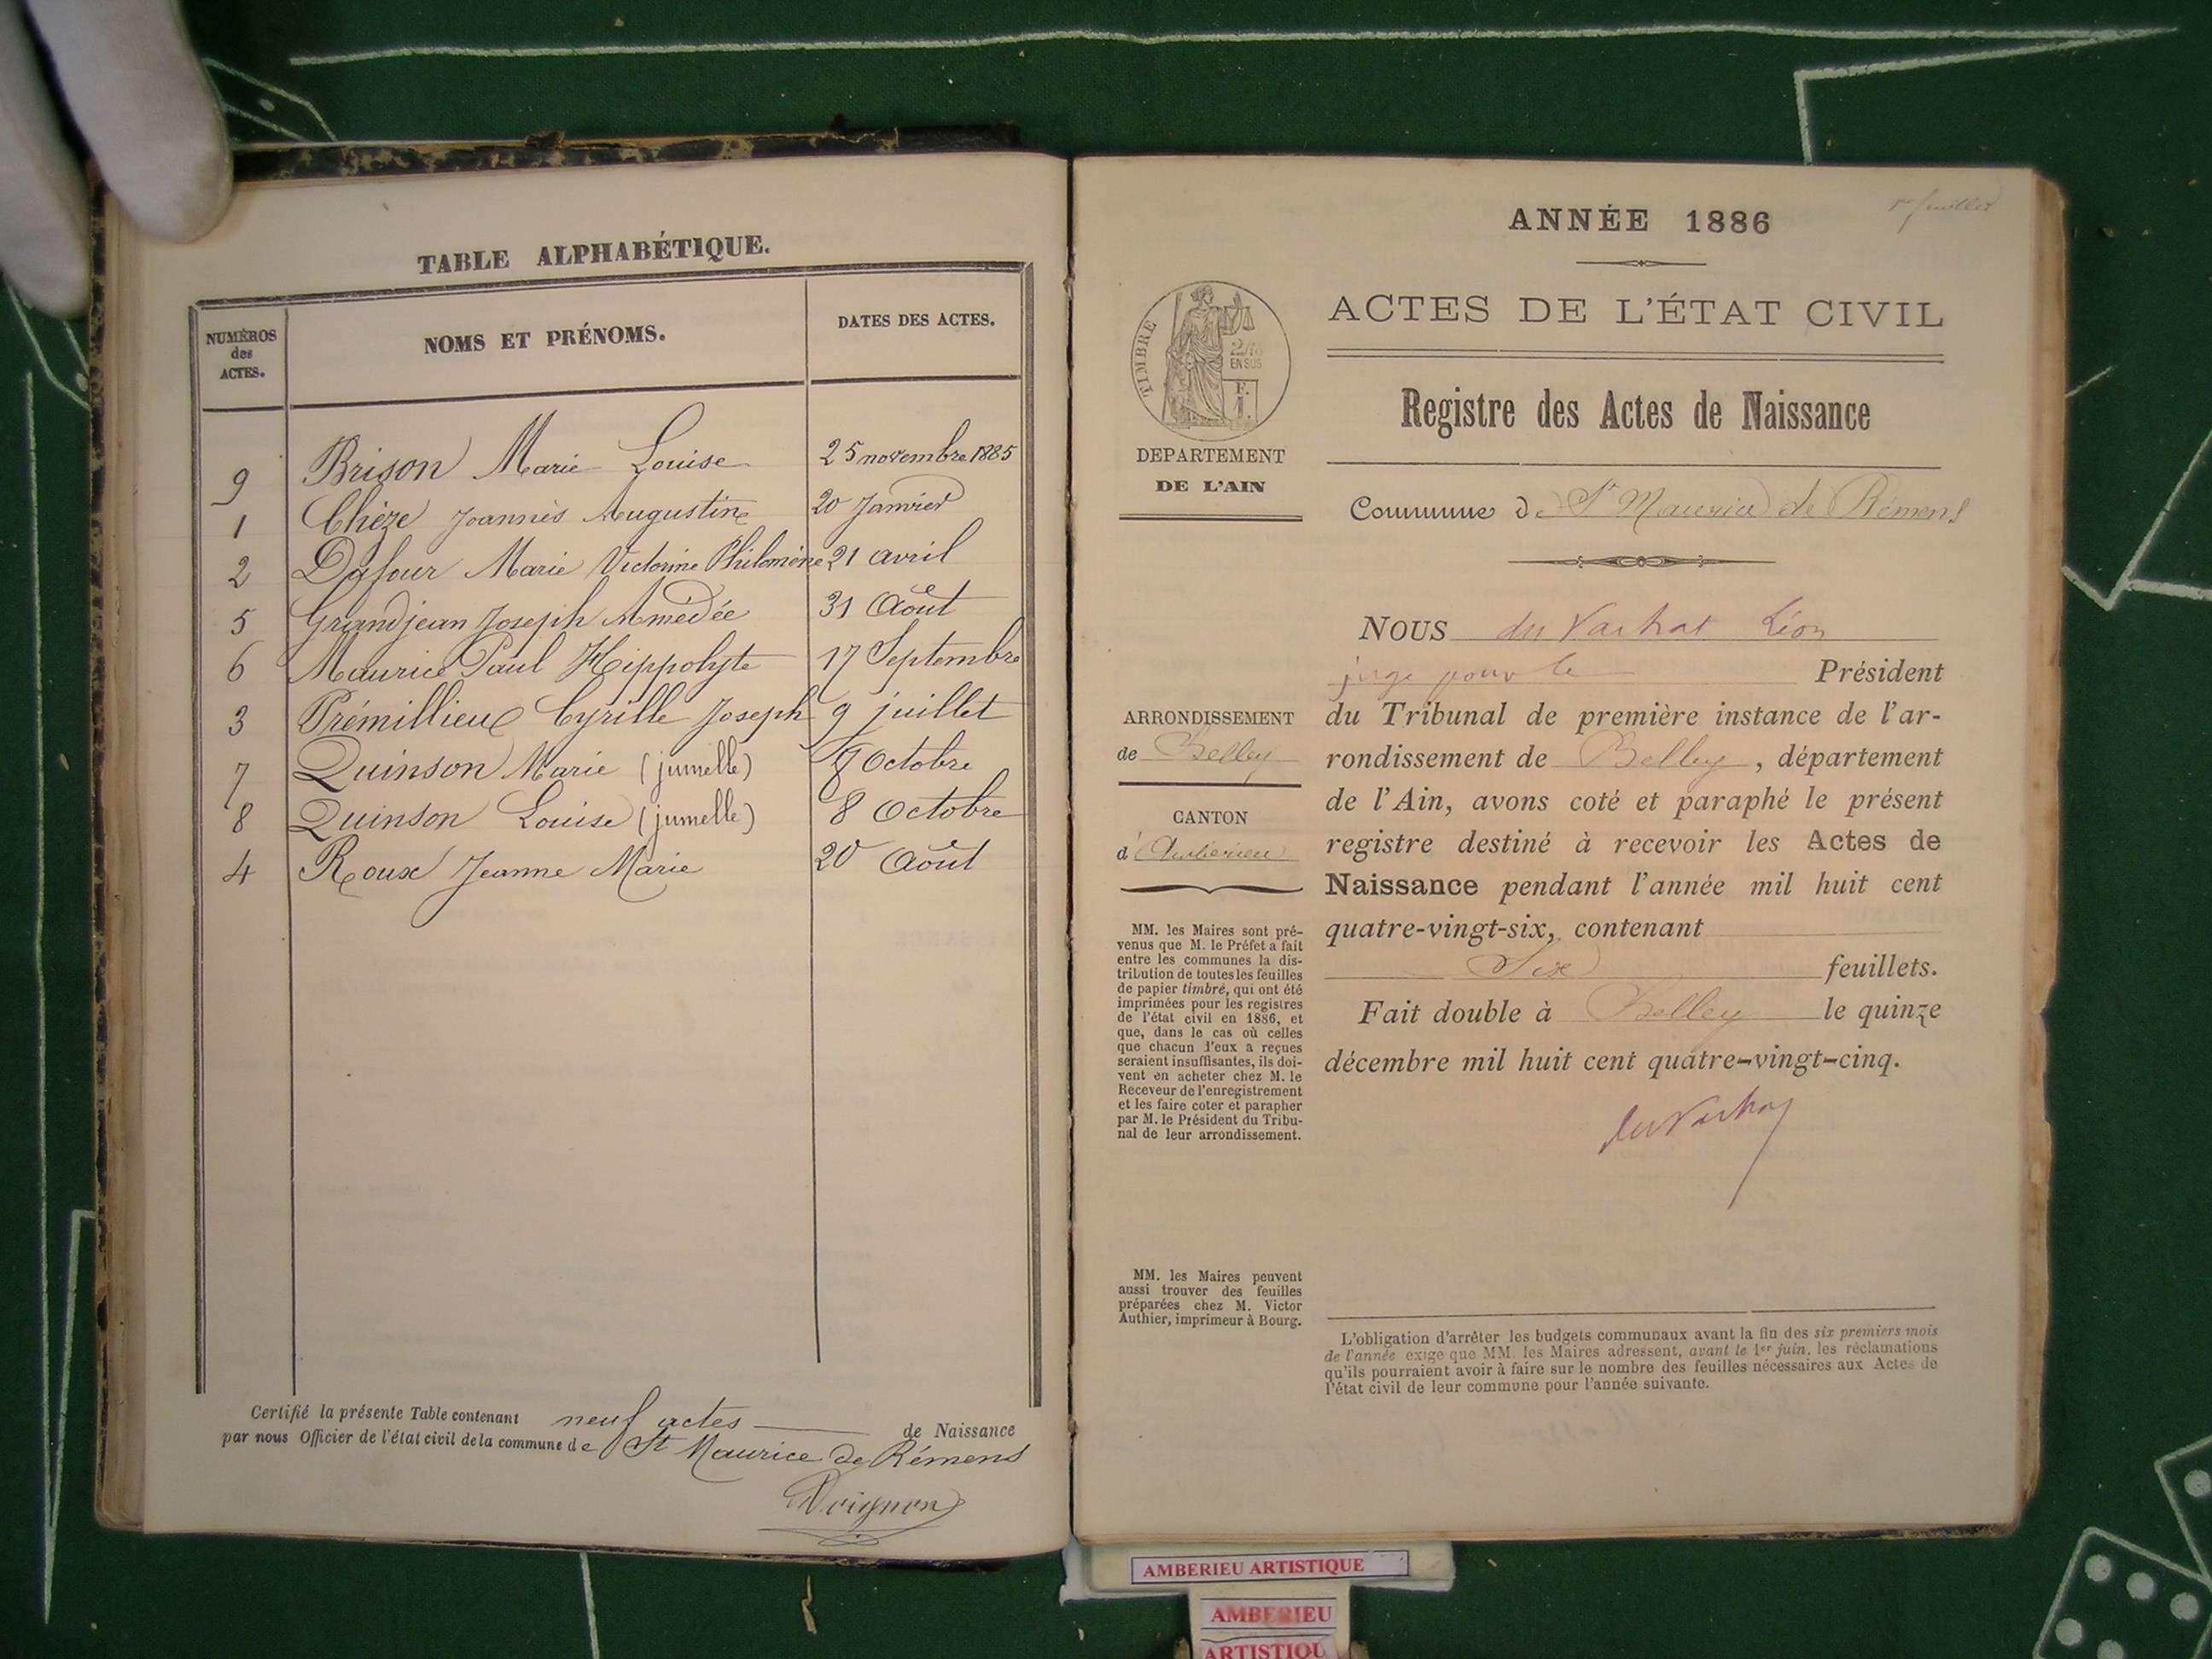 TABLE ALPHABÉTIQUE.
NUMÉROS
des
ACTES.
NOMS ET PRÉNOMS.
DATES DES ACTES.
9 Brison Marie Louise 25 novembre 1885
1 Chèze Joannès Augustin 20 Janvier
2 Dafour Marie Victorine Philomène 21 avril
5 Grandjean Joseph Amédée 31 Août
6 Maurice Paul Hippolyte 17 Septembre
3 Prémillieux Cyrille Joseph 9 juillet
7 Quinson Marie (jumelle) 8 Octobre
8 Quinson Louise (jumelle) 8 Octobre
4 Roux Jeanne Marie 20 Août
Certifié la présente Table contenant neuf actes de Naissance
par nous Officier de l'état civil de la commune de St Maurice de Rémens
ANNÉE 1886
1er feuillet
ACTES DE L'ÉTAT CIVIL
TIMBRE
2/10
EN SUS
Registre des Actes de Naissance
DEPARTEMENT
DE L'AIN
Commune de St Maurice de Rémens
NOUS du Vachat Léon
juge pour le Président
du Tribunal de première instance de l'ar-
rondissement de Belley, département
de l'Ain, avons coté et paraphé le présent
registre destiné à recevoir les Actes de
Naissance pendant l'année mil huit cent
quatre-vingt-six, contenant
Six feuillets.
Fait double à Belley le quinze
décembre mil huit cent quatre-vingt-cinq.
du Vachat
ARRONDISSEMENT
de Belley
CANTON
d'Ambérieu
MM. les Maires sont pré-
venus que M. le Préfet a fait
entre les communes la dis-
tribution de toutes les feuilles
de papier timbré, qui ont été
imprimées pour les registres
de l'état civil en 1886, et
que, dans le cas où celles
que chacun d'eux a reçues
seraient insuffisantes, ils doi-
vent en acheter chez M. le
Receveur de l'enregistrement
et les faire coter et parapher
par M. le Président du Tribu-
nal de leur arrondissement.
MM. les Maires peuvent
aussi trouver des feuilles
préparées chez M. Victor
Authier, imprimeur à Bourg.
L'obligation d'arrêter les budgets communaux avant la fin des six premiers mois
de l'année exige que MM. les Maires adressent, avant le 1er juin, les réclamations
qu'ils pourraient avoir à faire sur le nombre des feuilles nécessaires aux Actes de
l'état civil de leur commune pour l'année suivante.
AMBERIEU ARTISTIQUE
AMBERIEU
ARTISTIQU